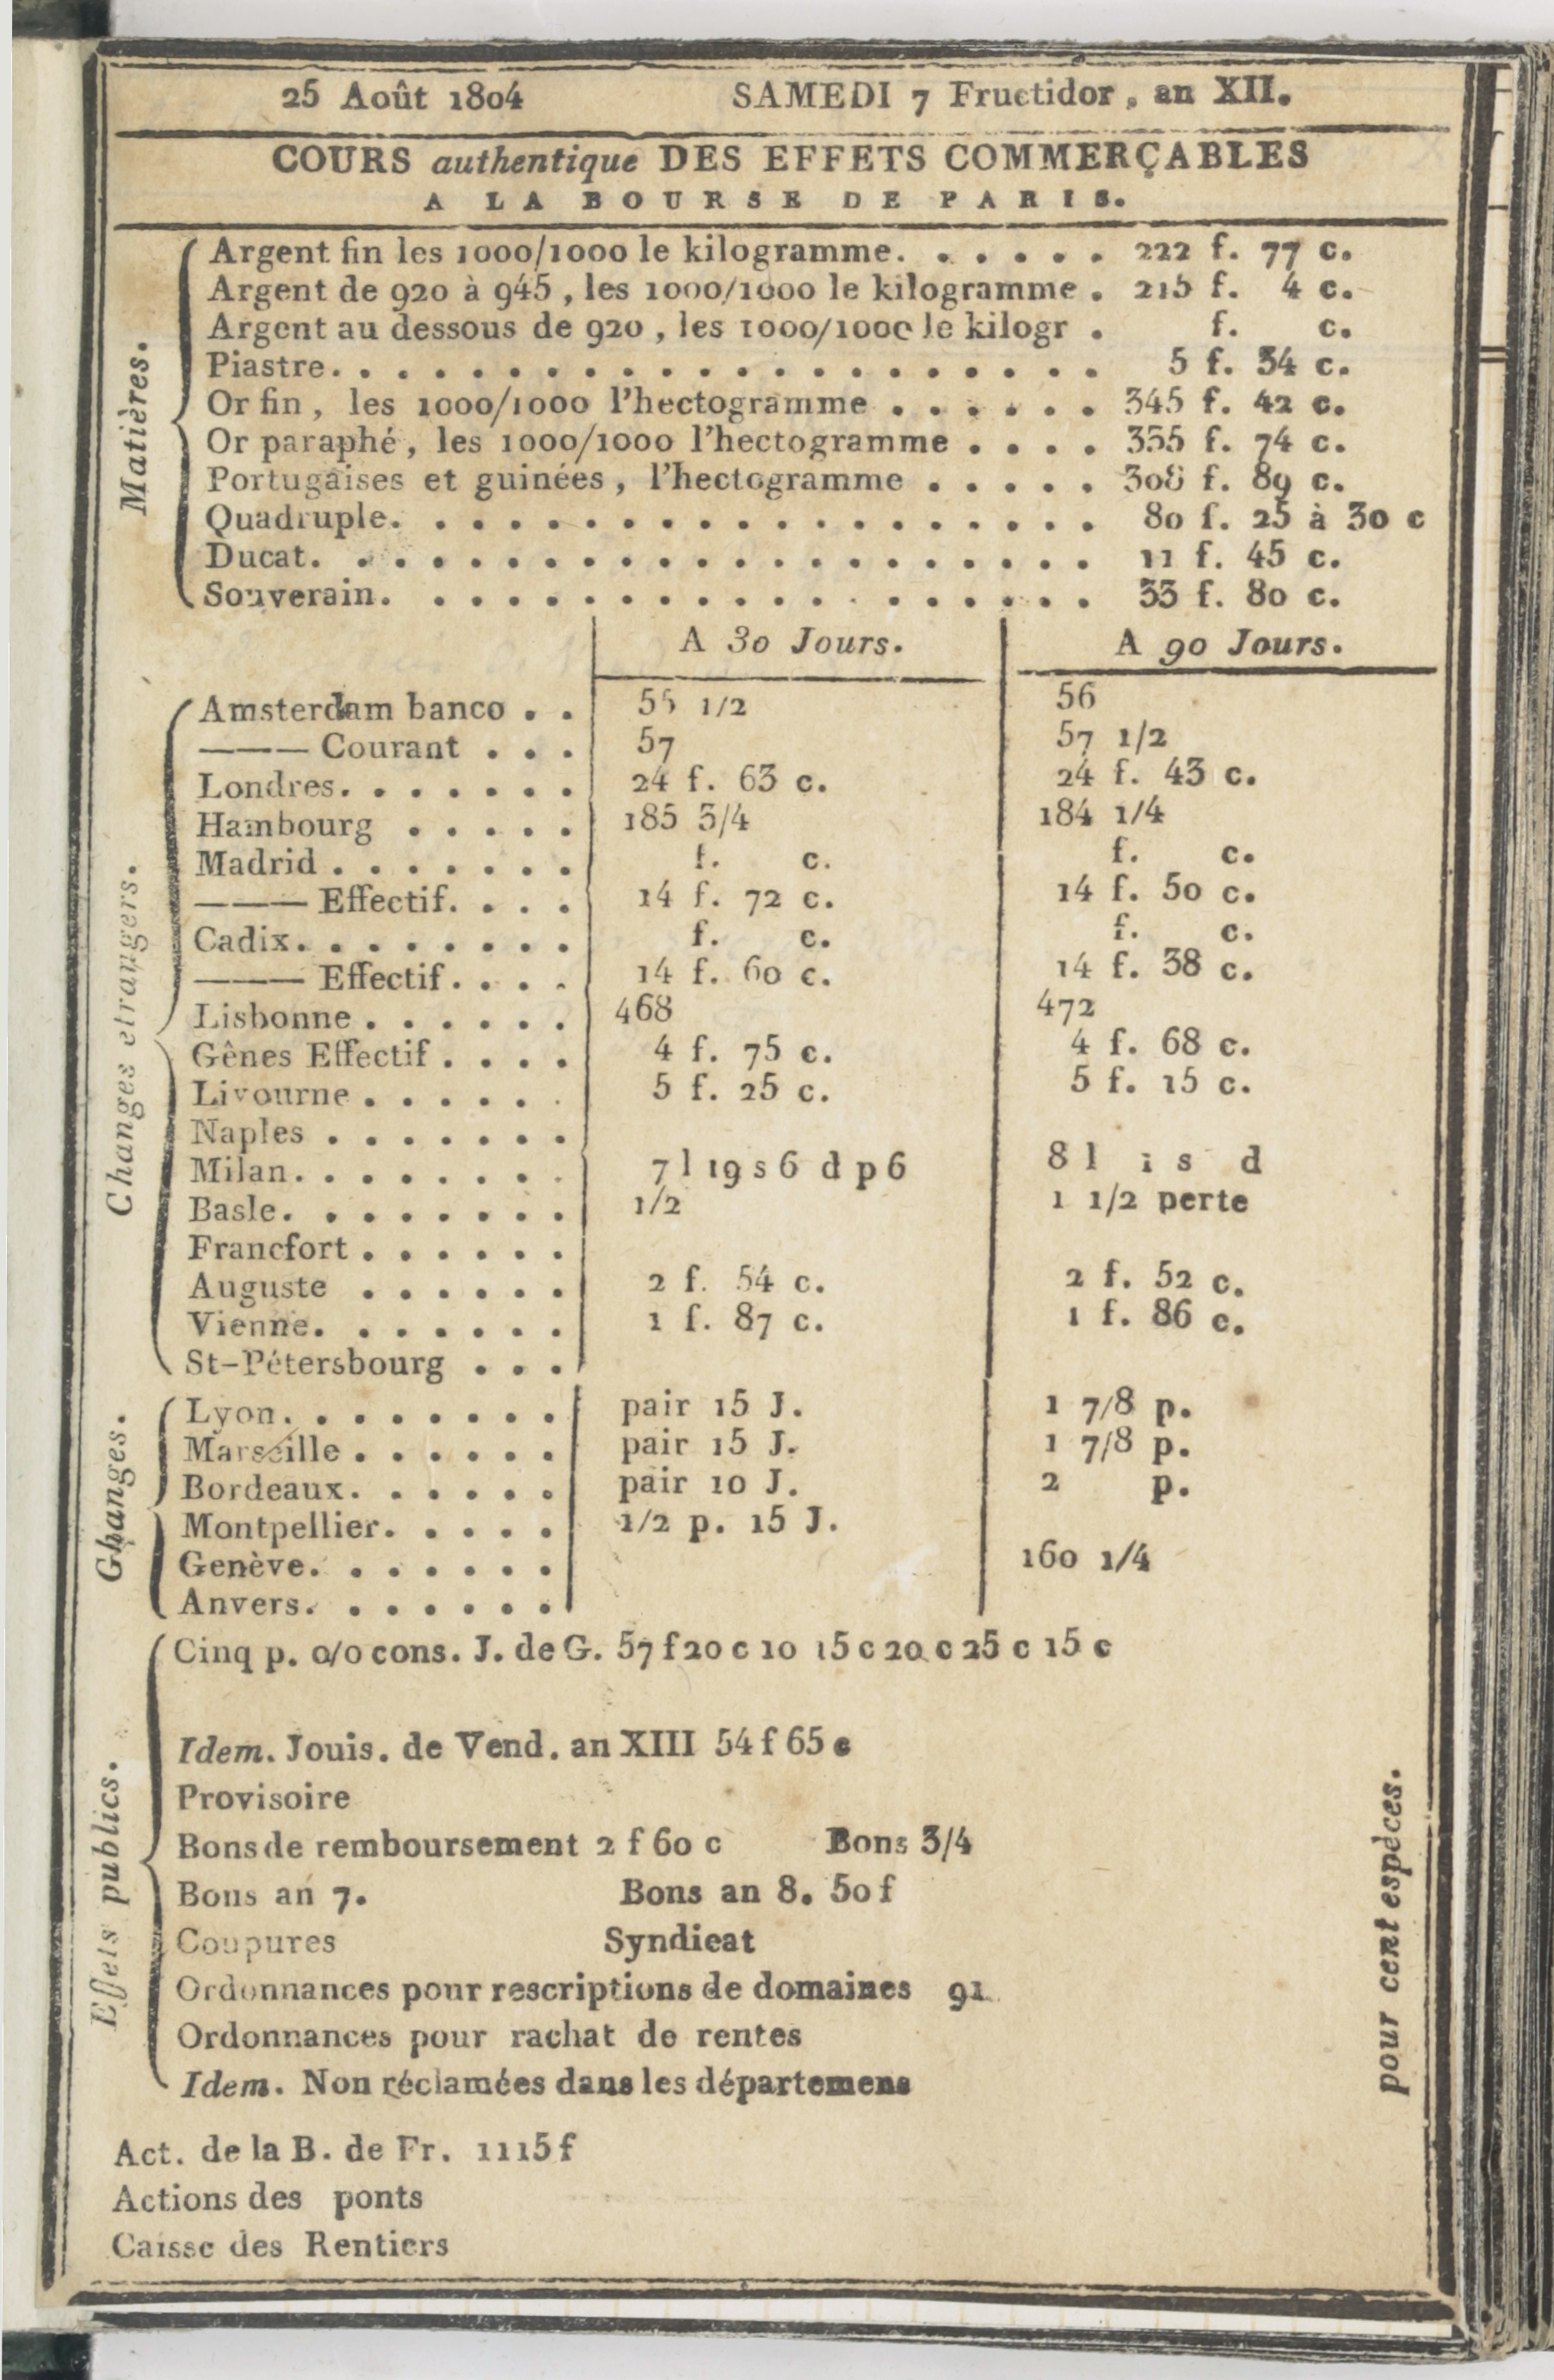 25 Août 1804 SAMEDI 7 Fructidor, an XII.
COURS authentique DES EFFETS COMMERÇABLES
A LA BOURSE DE PARIS.
Matières.
Argent fin les 1000/1000 le kilogramme. . . . . . 222 f. 77 c.
Argent de 920 à 945, les 1000/1000 le kilogramme . 215 f. 4 c.
Argent au dessous de 920, les 1000/1000 le kilogr . f. c.
Piastre. . . . . . . . . . . . . . . . . . . . . 5 f. 34 c.
Or fin, les 1000/1000 l'hectogramme . . . . . . 345 f. 42 c.
Or paraphé, les 1000/1000 l'hectogramme . . . . 335 f. 74 c.
Portugaises et guinées, l'hectogramme . . . . . 308 f. 89 c.
Quadruple. . . . . . . . . . . . . . . . . . . 80 f. 25 à 30 c
Ducat. . . . . . . . . . . . . . . . . . . . . 11 f. 45 c.
Souverain. . . . . . . . . . . . . . . . . . . 33 f. 80 c.
A 30 Jours. A 90 Jours.
Changes etrangers.
Amsterdam banco . . 55 1/2 56
——— Courant . . . 57 57 1/2
Londres. . . . . . . 24 f. 63 c. 24 f. 43 c.
Hambourg . . . . . 185 3/4 184 1/4
Madrid . . . . . . . f. c. f. c.
——— Effectif. . . . 14 f. 72 c. 14 f. 50 c.
Cadix. . . . . . . . f. c. f. c.
——— Effectif. . . . 14 f. 60 c. 14 f. 38 c.
Lisbonne . . . . . . 468 472
Gênes Effectif . . . . 4 f. 75 c. 4 f. 68 c.
Livourne . . . . . . 5 f. 25 c. 5 f. 15 c.
Naples . . . . . . .
Milan. . . . . . . . 7 l 19 s 6 d p 6 8 l 1 s d
Basle. . . . . . . . 1/2 1 1/2 perte
Francfort . . . . . .
Auguste . . . . . . 2 f. 54 c. 2 f. 52 c.
Vienne. . . . . . . 1 f. 87 c. 1 f. 86 c.
St-Pétersbourg . . .
Changes.
Lyon. . . . . . . . pair 15 J. 1 7/8 p.
Marseille . . . . . . pair 15 J. 1 7/8 p.
Bordeaux. . . . . . pair 10 J. 2 p.
Montpellier. . . . . 1/2 p. 15 J.
Genève. . . . . . . 160 1/4
Anvers. . . . . . .
Effets publics.
Cinq p. o/o cons. J. de G. 57 f 20 c 10 15 c 20 c 25 c 15 c
Idem. Jouis. de Vend. an XIII 54 f 65 c
Provisoire
Bons de remboursement 2 f 60 c Bons 3/4
Bons an 7. Bons an 8. 50 f
Coupures Syndicat
Ordonnances pour rescriptions de domaines 91
Ordonnances pour rachat de rentes
Idem. Non réclamées dans les départemens
pour cent espèces.
Act. de la B. de Fr. 1115 f
Actions des ponts
Caisse des Rentiers